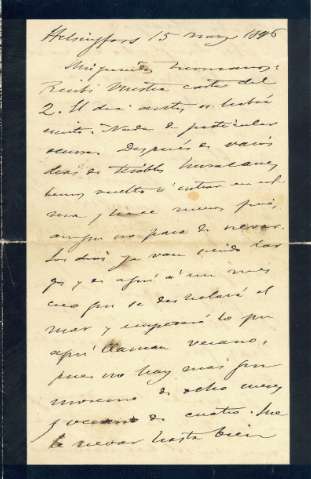 Helsingfors 15 marzo 1896
Mis queridos hermanos:
Recibí vuestra carta del
2. El dia antes os había
escrito. Nada de particular
ocurre. Después de varios
dias de terribles huracanes
hemos vuelto á entrar en
y hace menos frio,
aunque no para de nevar.
Los dias ya van siendo lar
gos y de aquí á un mes
creo que se deshelará el
mar y empezará lo que
aquí llaman verano,
pues no hay mas que
invierno de ocho meses
y verano de cuatro.
nevar hasta bien